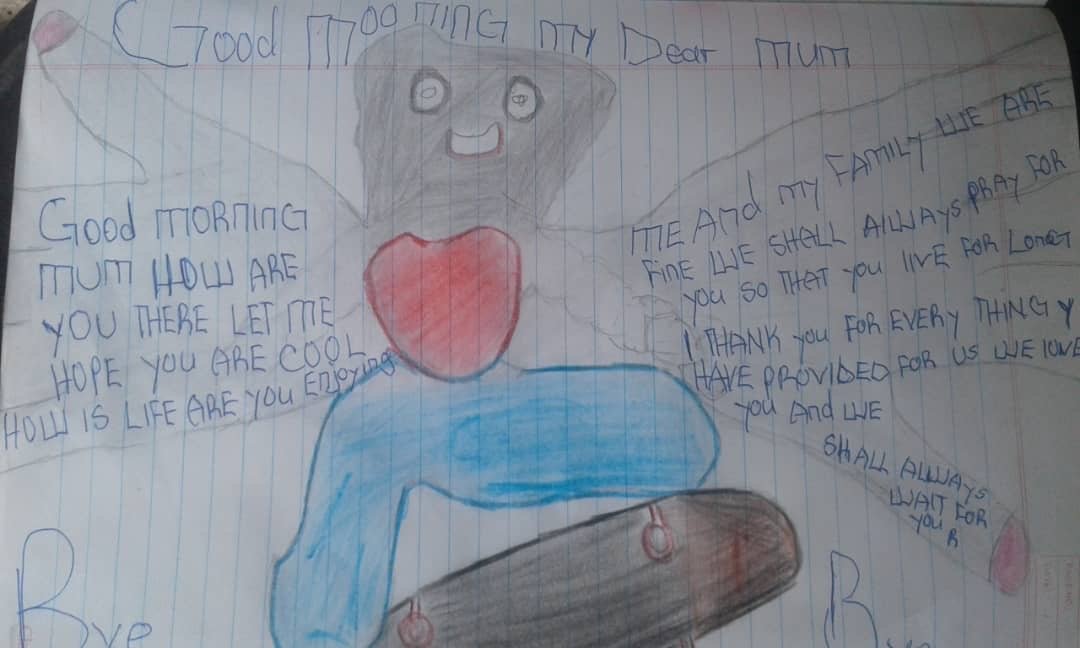 Good mooning my Dear mum
Good morning
mum HOW ARE
YOU THERE LET ME
HOPE you ARE COOL
HOW IS LIFE ARE YOU Enjoying
ME And my FAMILY WE ARE
FINE WE SHALL AlWAYS PRAY FOR
you so THAT you lIVE FOR LONG
I THANK you FOR EVERY THING Y
HAVE PROVIDED FOR US WE lOVE
you And WE
SHALL AlWAYS
WAIT FOR
you R
Bye